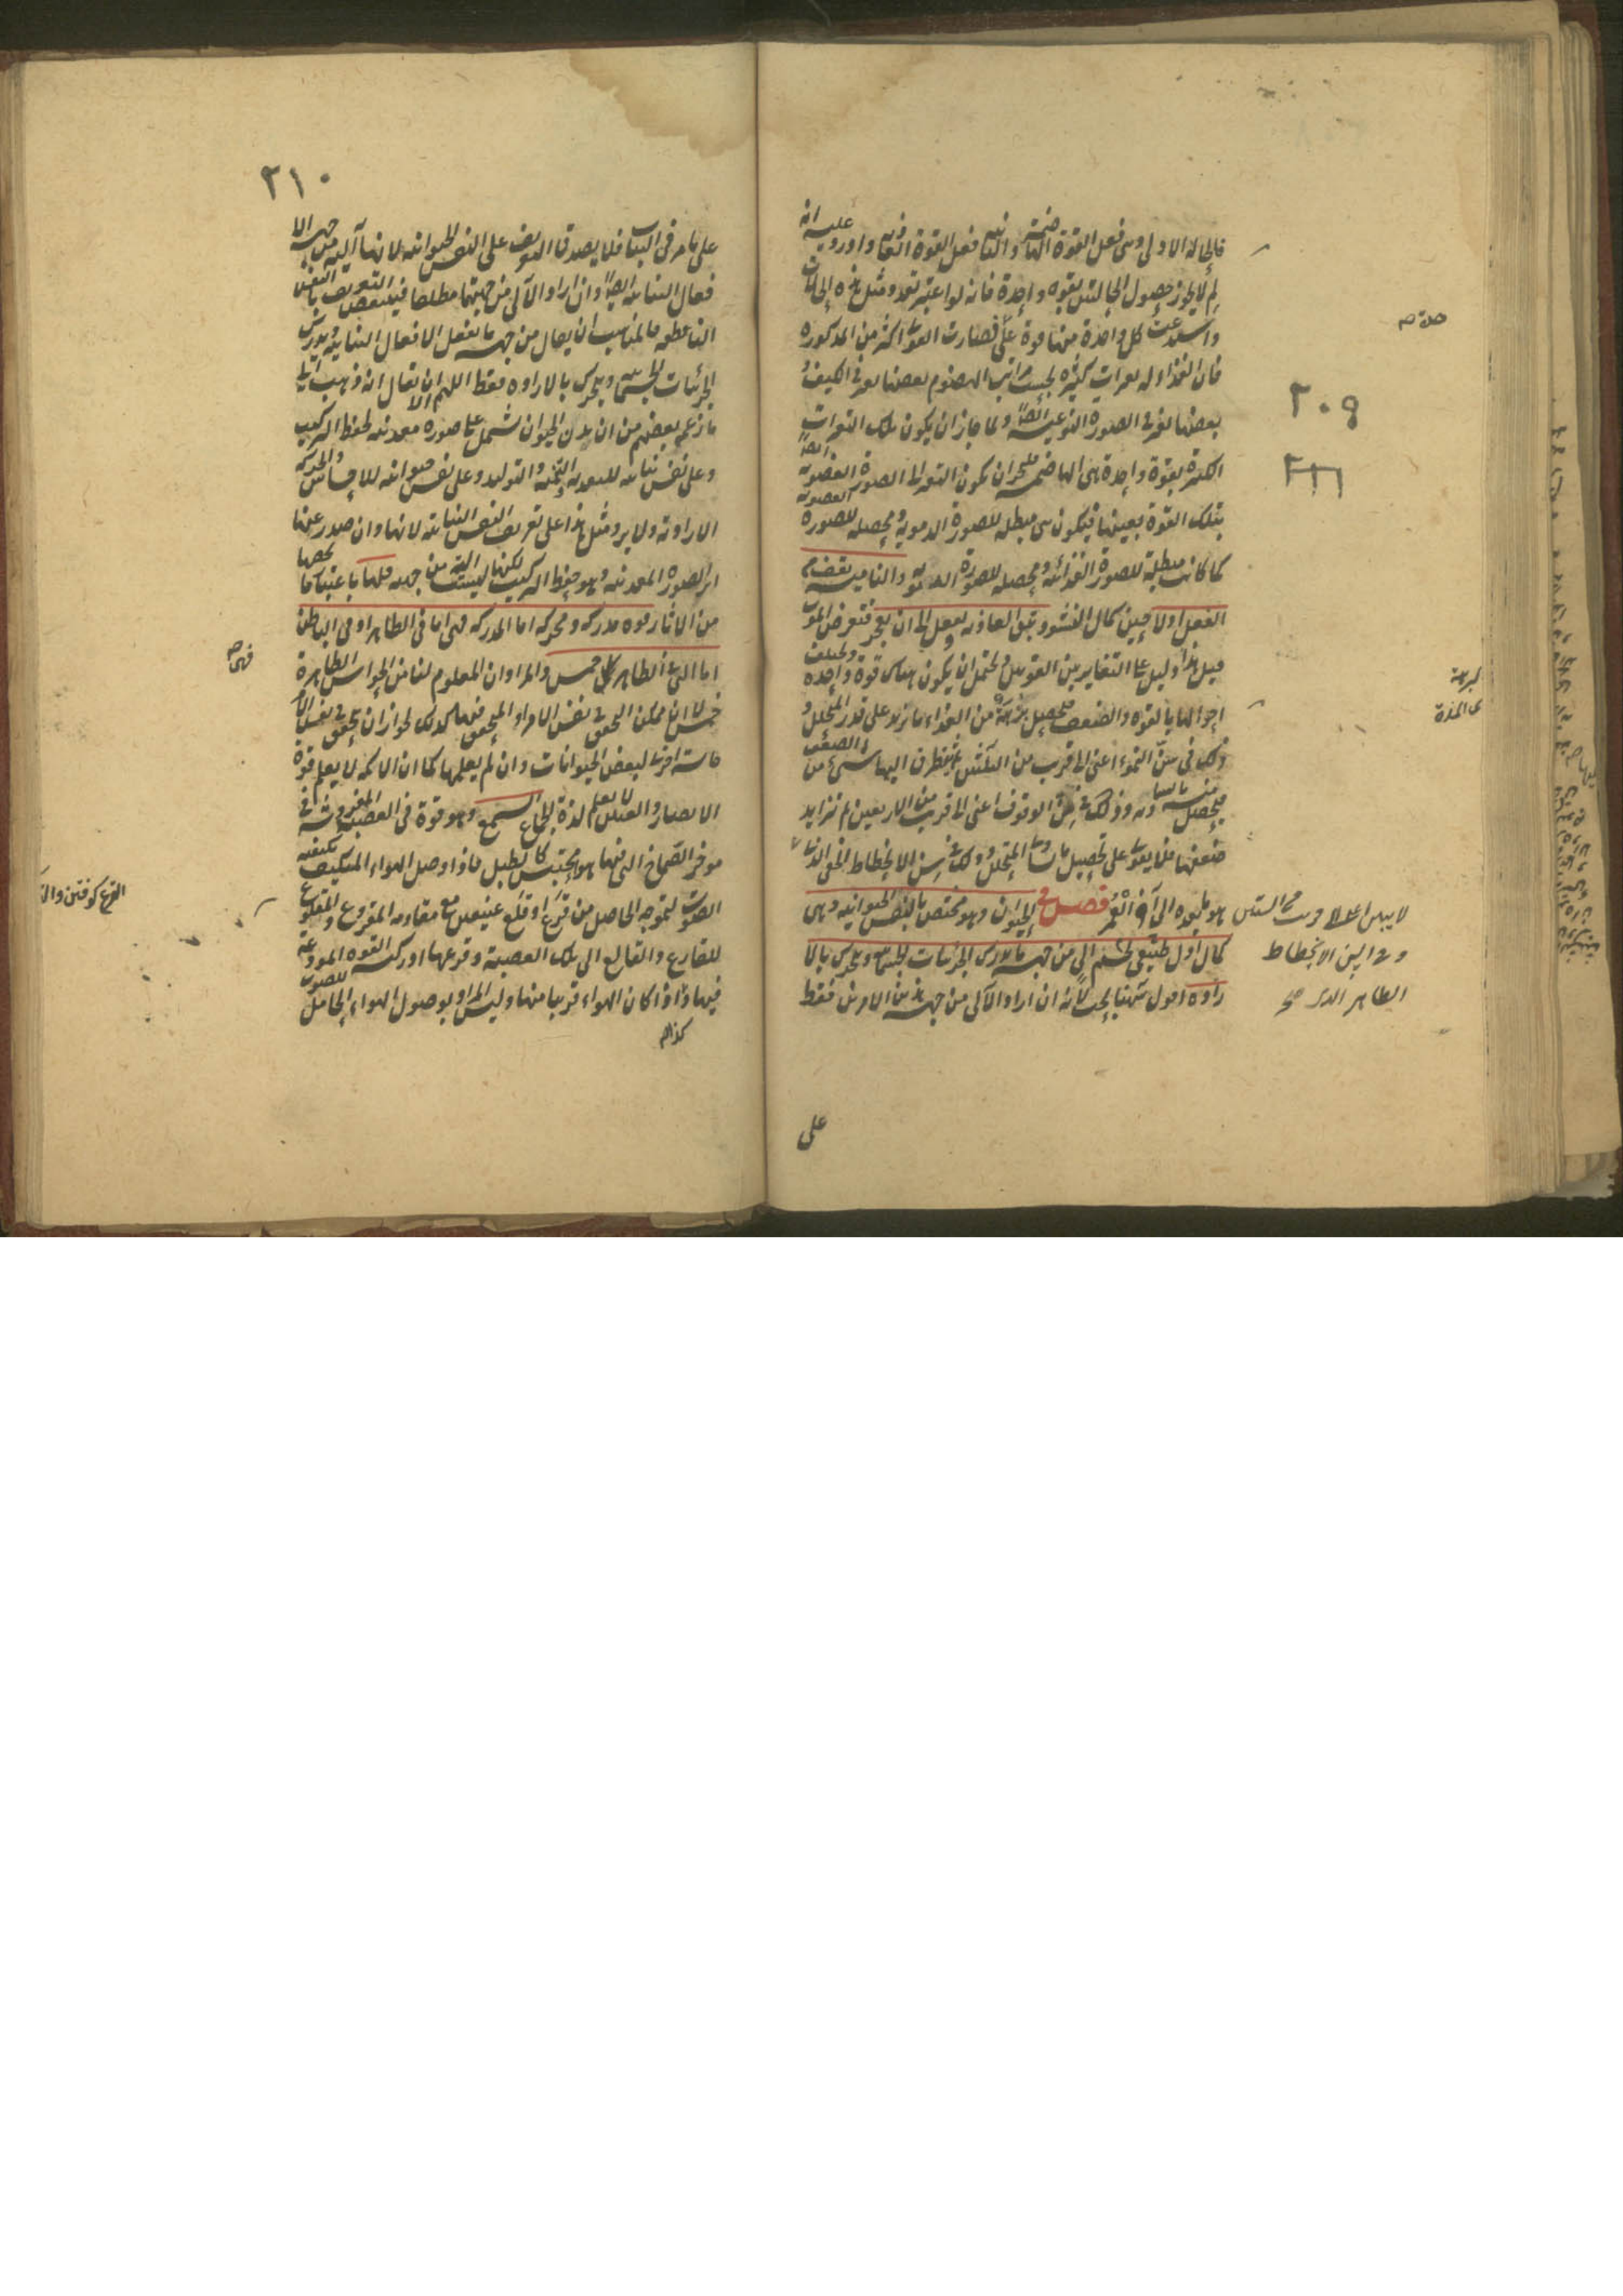 فالحالة الاولى هى فعل القوة الهاضمة والثانية فعل القوة الغاذية واورد عليه انه
لم لا يجوز حصول الحالتين بقوة واحدة فانه لو اعتبر تعدد مثل هذه الحالات
واستدعت كل واحدة منها قوة على فصارت القوى اكثر من المذكورة
فان الغذاء له تغيرات كثيرة بحسب مراتب الهضوم بعضها تغير فى الكيف و
بعضها تغير فى الصورة النوعية ايضا ولما جاز ان يكون تلك التغيرات
الكثيرة بقوة واحدة هى الهاضمة فليجز ان يكون التغير الى الصورة العضوية ايضا
بتلك القوة بعينها فيكون هى مبطلة للصورة الدموية ومحصلة للصورة العضوية
كما كانت مبطلة للصورة الغذائية ومحصلة للصورة الدموية والنامية تقف من
الفعل اولا حين كمال النشو وتبقى الغاذية تفعل الى ان تعجز فتعرض الموت
قيل هذا دليل على التغاير بين القوتين ويحتمل ان يكون هناك قوة واحدة ويختلف
احوالها بالقوة والضعف فتحصيل من الغذاء ما يزيد على قدر المتحلل و
ذلك فى سن النمو اعنى الى قريب من الثلثين ثم يتطرق اليها شئ من الضعف
فيحصل منه ما يساويه وذلك فى سن الوقوف اعنى الى قريب من الاربعين ثم تزايد
ضعفها فلا يقوى على تحصيل ما يساوى المتحلل وذلك فى سن الانحطاط الخفى الذى
هو ما بعده الى آخر العمر فصل فى الحيوان وهو مختص بالنفس الحيوانية وهى
كمال اول لجسم طبيعى آلى من جهة ما يدرك الجزئيات الجسمانية ويتحرك بالا
رادة اقول ههنا بحث لانه ان اراد الآلى من جهة هذين الامرين فقط
على
٢٠٩
٢١٦
الظاهر الذى صح
٢١٠
على ما مر فى النبات فلا يصدق التعريف على النفس الحيوانية لانها آلية من جهة الا
فعال النباتية ايضا وان اراد الآلى من جهتها مطلقا فينتقض التعريف بالنفس
الناطقة فالمناسب ان يقال من جهة ما يفعل الافعال النباتية ويدرك
الجزئيات الجسمانية ويتحرك بالارادة فقط اللهم الا ان يقال انه ذهب الى
ما زعم بعضهم من ان بدن الحيوان مشتمل على صورة معدنية لحفظ التركيب
وعلى نفس نباتية للتغذية والتنمية والتوليد وعلى نفس حيوانية للاحساس والحركة
الارادية ولا يرد مثل هذا على تعريف النفس النباتية لانها وان صدر عنها
اثر الصورة المعدنية وهو حفظ التركيب لكنها ليست آلية من جهته فلها باعتبار ما يخصها
من الآثار قوة مدركة ومحركة اما المدركة فهى اما فى الظاهر او فى الباطن
اما التى فى الظاهر فهى خمس والمراد ان المعلوم لنا من الحواس الظاهرة
خمس لا ان ممكن التحقق فى نفس الامر او المتحقق فيها كذلك لجواز ان يتحقق فى نفس الامر
حاسة اخرى لبعض الحيوانات وان لم يعلمها كما ان الاكمه لا يعلم قوة
الابصار والعنين لا يعلم لذة الجماع السمع وهو قوة فى العصبة المفروشة فى
مؤخر الصماخ التى فيها هواء محتبس كالطبل فاذا وصل الهواء المتكيف بكيفية
الصوت لتموجه الحاصل من قرع او قلع عنيفين مع مقاومة المقروع والمقلوع
للقارع والقالع الى تلك العصبة وقرعها ادركته القوة المودعة
فيها وذا اذا كان الهواء قريبا منها وليس المراد بوصول الهواء الحامل للصوت
فهى